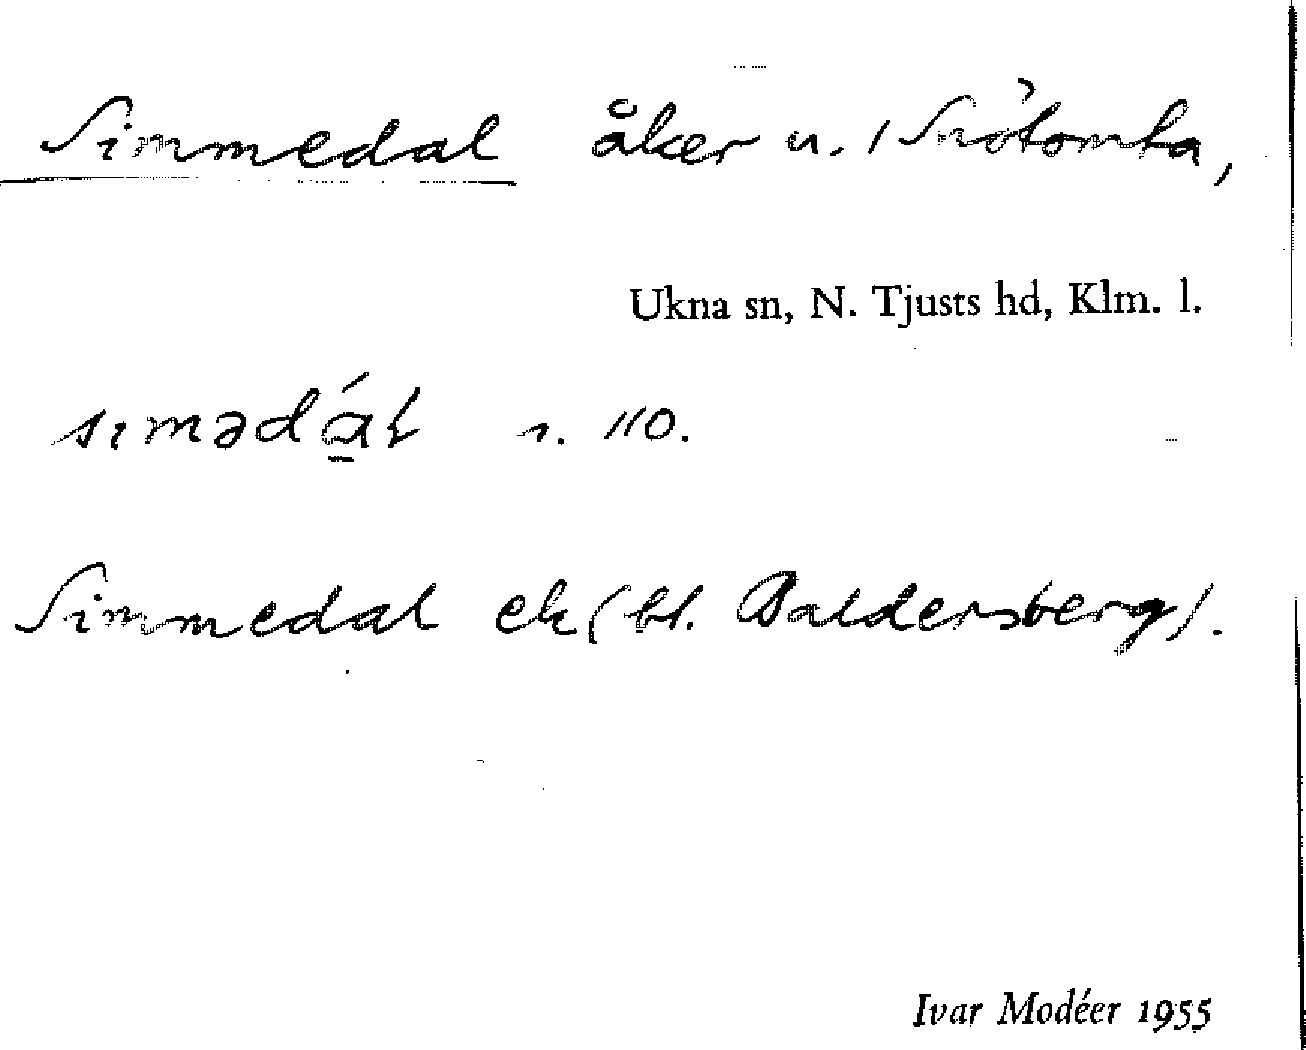 Simmedal åker u. Snötomta,
Ukna sn, N. Tjusts hd, Klm. l.
sımədá̱ƚ s. 110.
Simmedal ek (bl. Baldersberg).
Ivar Modéer 1955